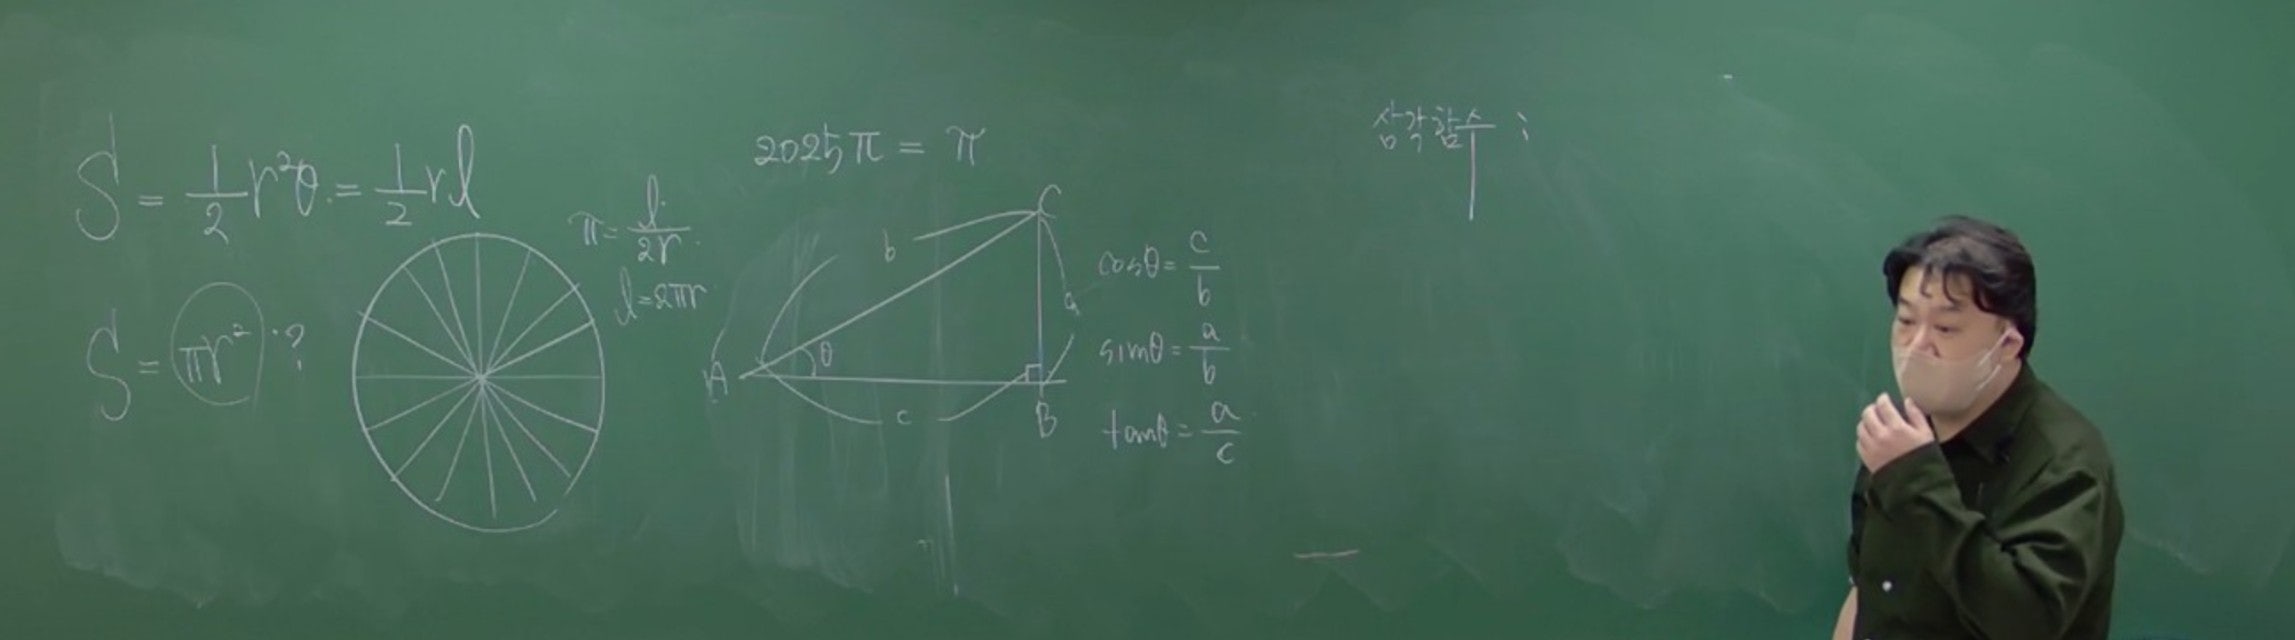 S = 1/2 r²θ = 1/2 rl
S = πr² ?
π = l/2r
l = 2πr
2025π = π
C
b
a
A
θ
c
B
cosθ = c/b
sinθ = a/b
tanθ = a/c
삼각함수 :